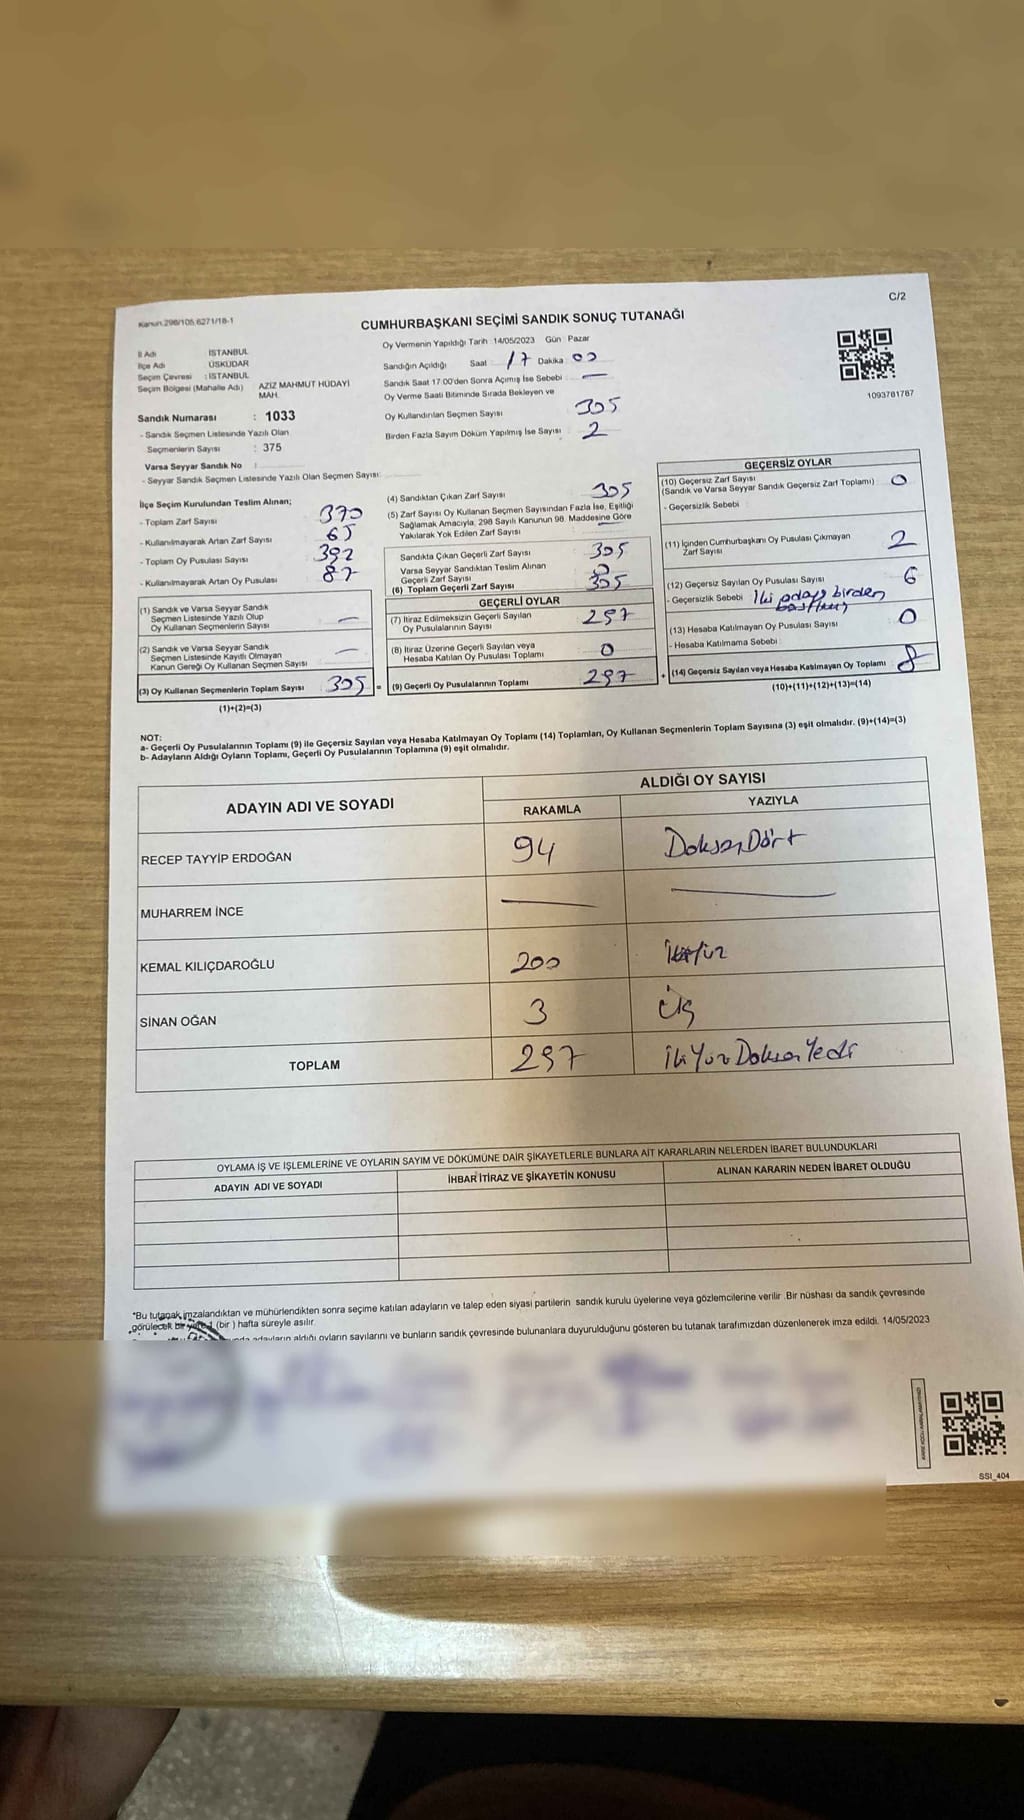 C/2
Kanun.298/105,6271/18-1
CUMHURBAŞKANI SEÇİMİ SANDIK SONUÇ TUTANAĞI
İl Adı İSTANBUL
İlçe Adı ÜSKÜDAR
Seçim Çevresi : İSTANBUL
Seçim Bölgesi (Mahalle Adı) AZİZ MAHMUT HÜDAYİ MAH.
Sandık Numarası : 1033
- Sandık Seçmen Listesinde Yazılı Olan
Seçmenlerin Sayısı : 375
Varsa Seyyar Sandık No :
- Seyyar Sandık Seçmen Listesinde Yazılı Olan Seçmen Sayısı:
Oy Vermenin Yapıldığı Tarih 14/05/2023 Gün Pazar
Sandığın Açıldığı Saat 17 Dakika 00
Sandık Saat 17:00'den Sonra Açımış İse Sebebi : —
Oy Verme Saati Bitiminde Sırada Bekleyen ve
Oy Kullandırılan Seçmen Sayısı 305
Birden Fazla Sayım Döküm Yapılmış İse Sayısı 2
1093781787
İlçe Seçim Kurulundan Teslim Alınan;
- Toplam Zarf Sayısı 370
- Kullanılmayarak Artan Zarf Sayısı 65
- Toplam Oy Pusulası Sayısı 392
- Kullanılmayarak Artan Oy Pusulası 87
(1) Sandık ve Varsa Seyyar Sandık
Seçmen Listesinde Yazılı Olup
Oy Kullanan Seçmenlerin Sayısı —
(2) Sandık ve Varsa Seyyar Sandık
Seçmen Listesinde Kayıtlı Olmayan
Kanun Gereği Oy Kullanan Seçmen Sayısı —
(3) Oy Kullanan Seçmenlerin Toplam Sayısı 305 =
(1)+(2)=(3)
(4) Sandıktan Çıkan Zarf Sayısı 305
(5) Zarf Sayısı Oy Kullanan Seçmen Sayısından Fazla İse, Eşitliği
Sağlamak Amacıyla, 298 Sayılı Kanunun 98. Maddesine Göre
Yakılarak Yok Edilen Zarf Sayısı
Sandıkta Çıkan Geçerli Zarf Sayısı 305
Varsa Seyyar Sandıktan Teslim Alınan
Geçerli Zarf Sayısı 0
(6) Toplam Geçerli Zarf Sayısı 305
GEÇERLİ OYLAR
(7) İtiraz Edilmeksizin Geçerli Sayılan
Oy Pusulalarının Sayısı 297
(8) İtiraz Üzerine Geçerli Sayılan veya
Hesaba Katılan Oy Pusulası Toplamı 0
(9) Geçerli Oy Pusulalarının Toplamı 297 +
GEÇERSİZ OYLAR
(10) Geçersiz Zarf Sayısı
(Sandık ve Varsa Seyyar Sandık Geçersiz Zarf Toplamı) 0
- Geçersizlik Sebebi :
(11) İçinden Cumhurbaşkanı Oy Pusulası Çıkmayan
Zarf Sayısı 2
(12) Geçersiz Sayılan Oy Pusulası Sayısı 6
- Geçersizlik Sebebi İki adaya birden
basılmış
(13) Hesaba Katılmayan Oy Pusulası Sayısı 0
- Hesaba Katılmama Sebebi :
(14) Geçersiz Sayılan veya Hesaba Katılmayan Oy Toplamı 8
(10)+(11)+(12)+(13)=(14)
NOT:
a- Geçerli Oy Pusulalarının Toplamı (9) ile Geçersiz Sayılan veya Hesaba Katılmayan Oy Toplamı (14) Toplamları, Oy Kullanan Seçmenlerin Toplam Sayısına (3) eşit olmalıdır. (9)+(14)=(3)
b- Adayların Aldığı Oyların Toplamı, Geçerli Oy Pusulalarının Toplamına (9) eşit olmalıdır.
ADAYIN ADI VE SOYADI ALDIĞI OY SAYISI
RAKAMLA YAZIYLA
RECEP TAYYİP ERDOĞAN 94 DoksanDört
MUHARREM İNCE — —
KEMAL KILIÇDAROĞLU 200 İkiYüz
SİNAN OĞAN 3 Üç
TOPLAM 297 İkiYüzDoksanYedi
OYLAMA İŞ VE İŞLEMLERİNE VE OYLARIN SAYIM VE DÖKÜMÜNE DAİR ŞİKAYETLERLE BUNLARA AİT KARARLARIN NELERDEN İBARET BULUNDUKLARI
ADAYIN ADI VE SOYADI İHBAR İTİRAZ VE ŞİKAYETİN KONUSU ALINAN KARARIN NEDEN İBARET OLDUĞU
*Bu tutanak imzalandıktan ve mühürlendikten sonra seçime katılan adayların ve talep eden siyasi partilerin sandık kurulu üyelerine veya gözlemcilerine verilir .Bir nüshası da sandık çevresinde
görülecek bir yere 1 (bir ) hafta süreyle asılır.
adayların aldığı oyların sayılarını ve bunların sandık çevresinde bulunanlara duyurulduğunu gösteren bu tutanak tarafımızdan düzenlenerek imza edildi. 14/05/2023
SSI_404